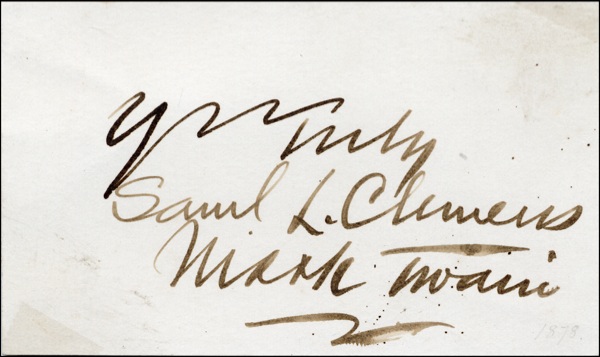 Yrs truly
Saml L. Clemens
Mark Twain
1878.